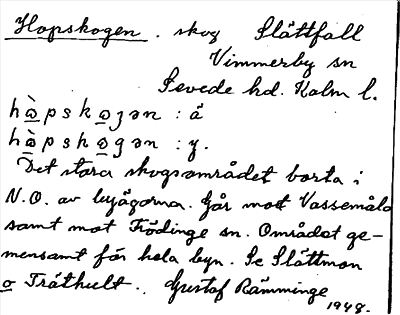 Hopskogen. skog Slättfall
Vimmerby sn
Sevede hd. Kalm l.
hòpskoʒən : ä
hòpskogən : y.
Det stora skogsområdet borta i
N.O. av byägorna. Går mot Vassemåla
samt mot Frödinge sn. Området ge-
mensamt för hela byn. Se Slättmon
o Träthult. Gustaf Rämminge
1948.